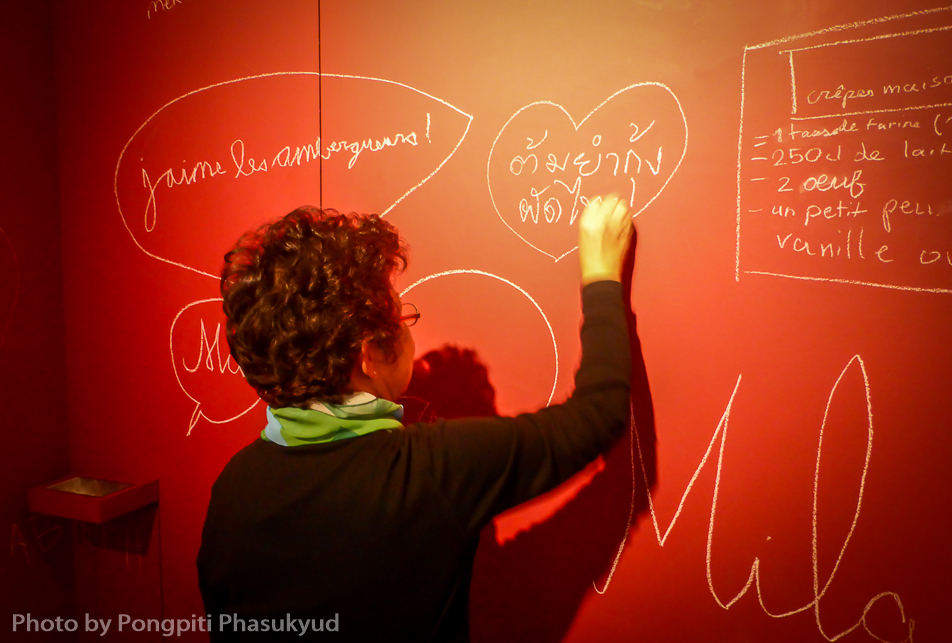 j'aime les ambergueurs!
ต้มยำกุ้ง
ผัดไทย
crêpes maison
- 1 tasse de farine (
- 250 cl de lait
- 2 oeuf
- un petit peu
vanille ou
Mila
Photo by Pongpiti Phasukyud